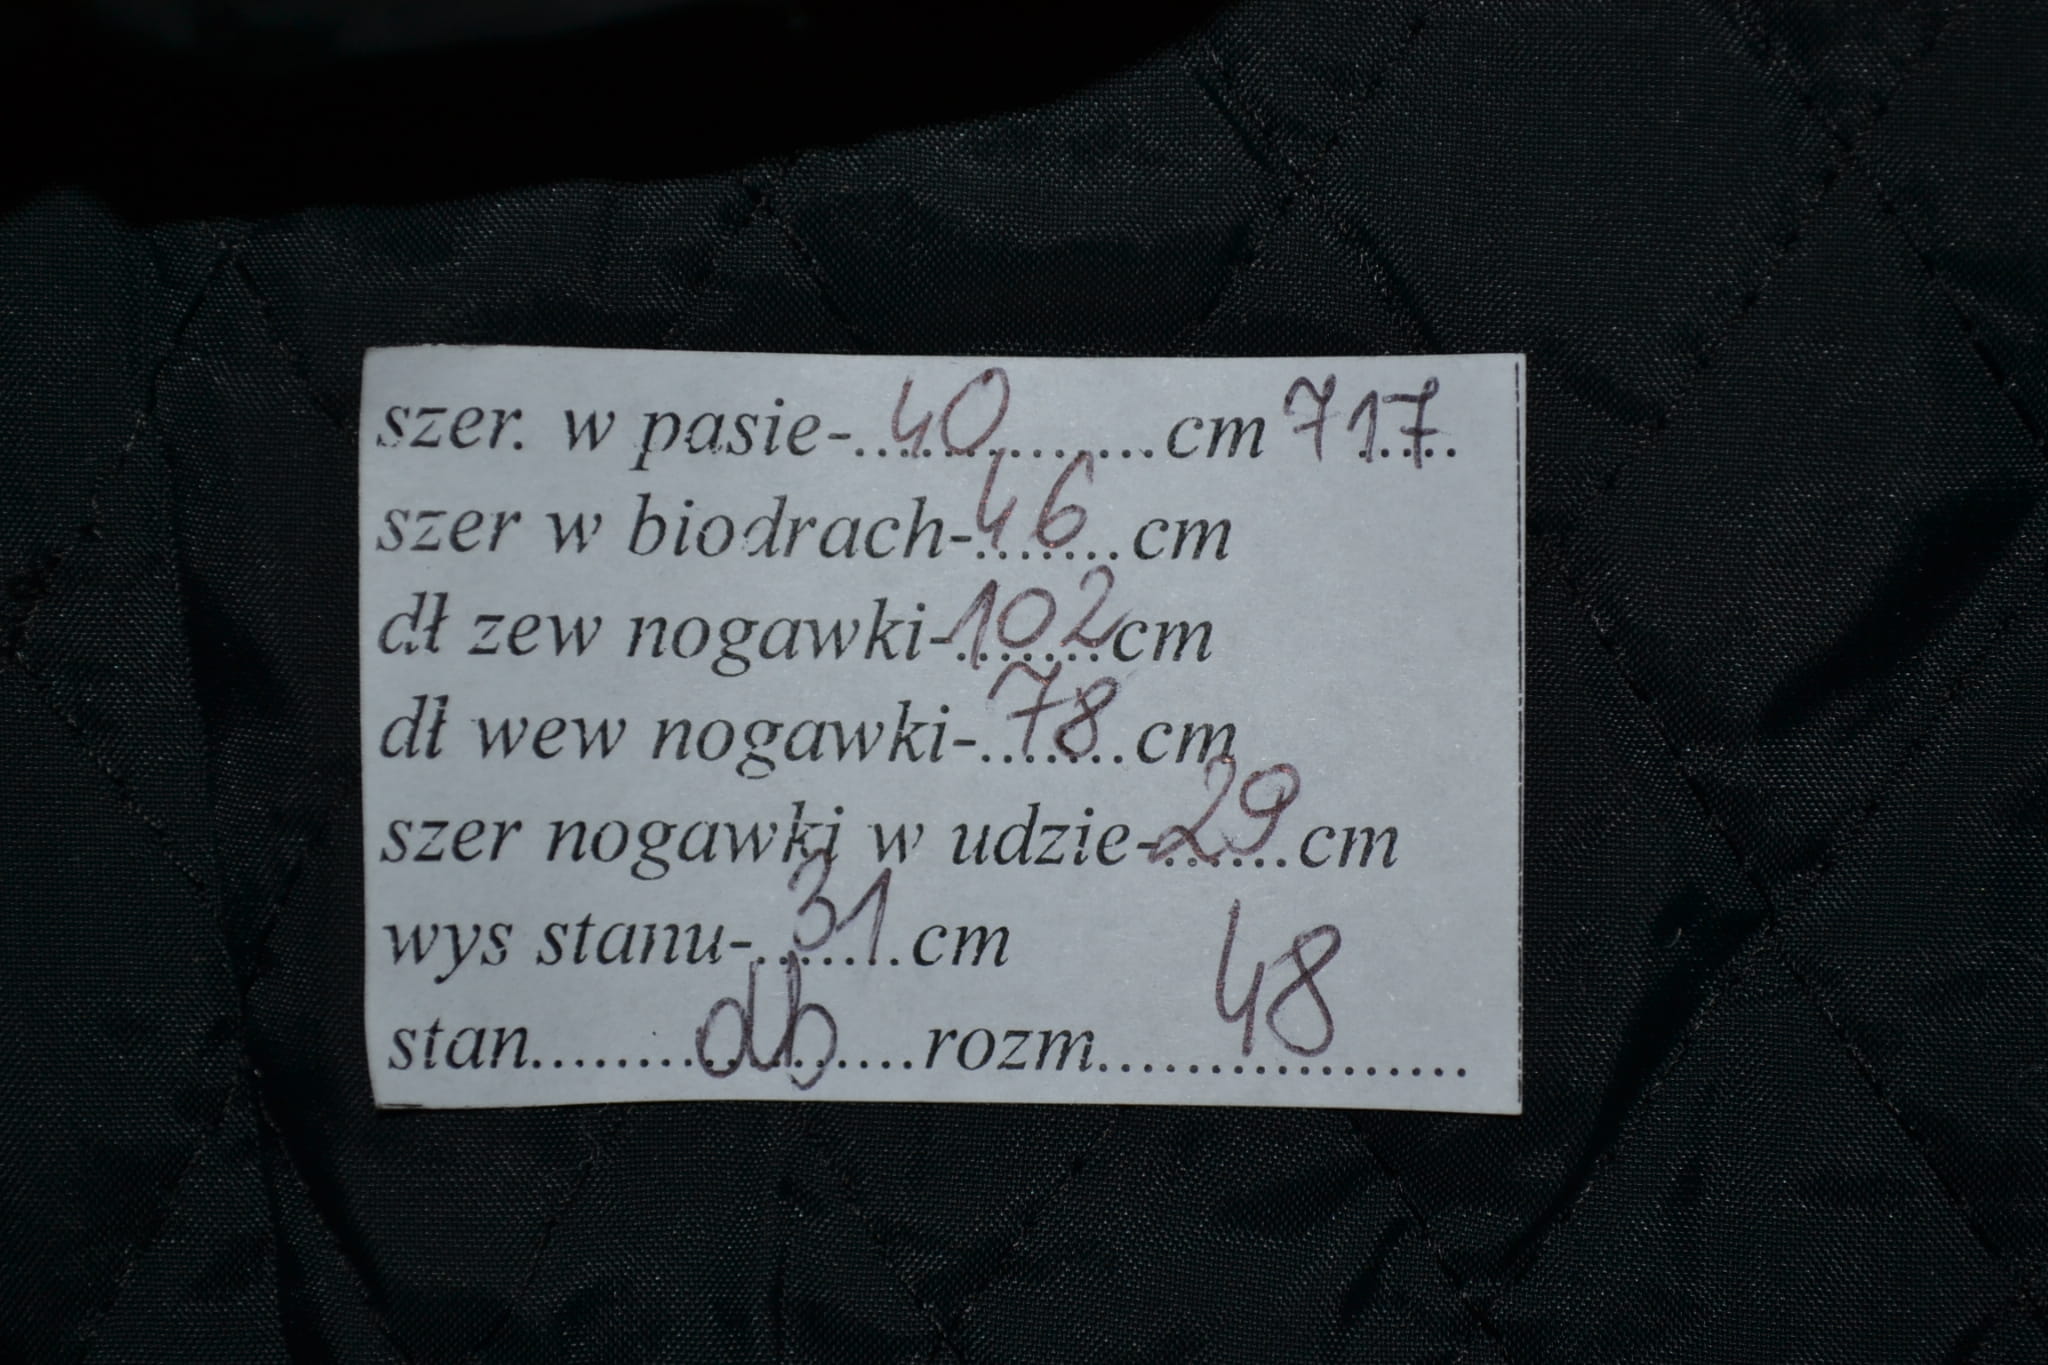 szer. w pasie-...40...........cm 717.
szer w biodrach-46.cm
dł zew nogawki-102cm
dł wew nogawki-.78.cm
szer nogawki w udzie-29cm
wys stanu-.31.cm
stan.......db....rozm....48.........